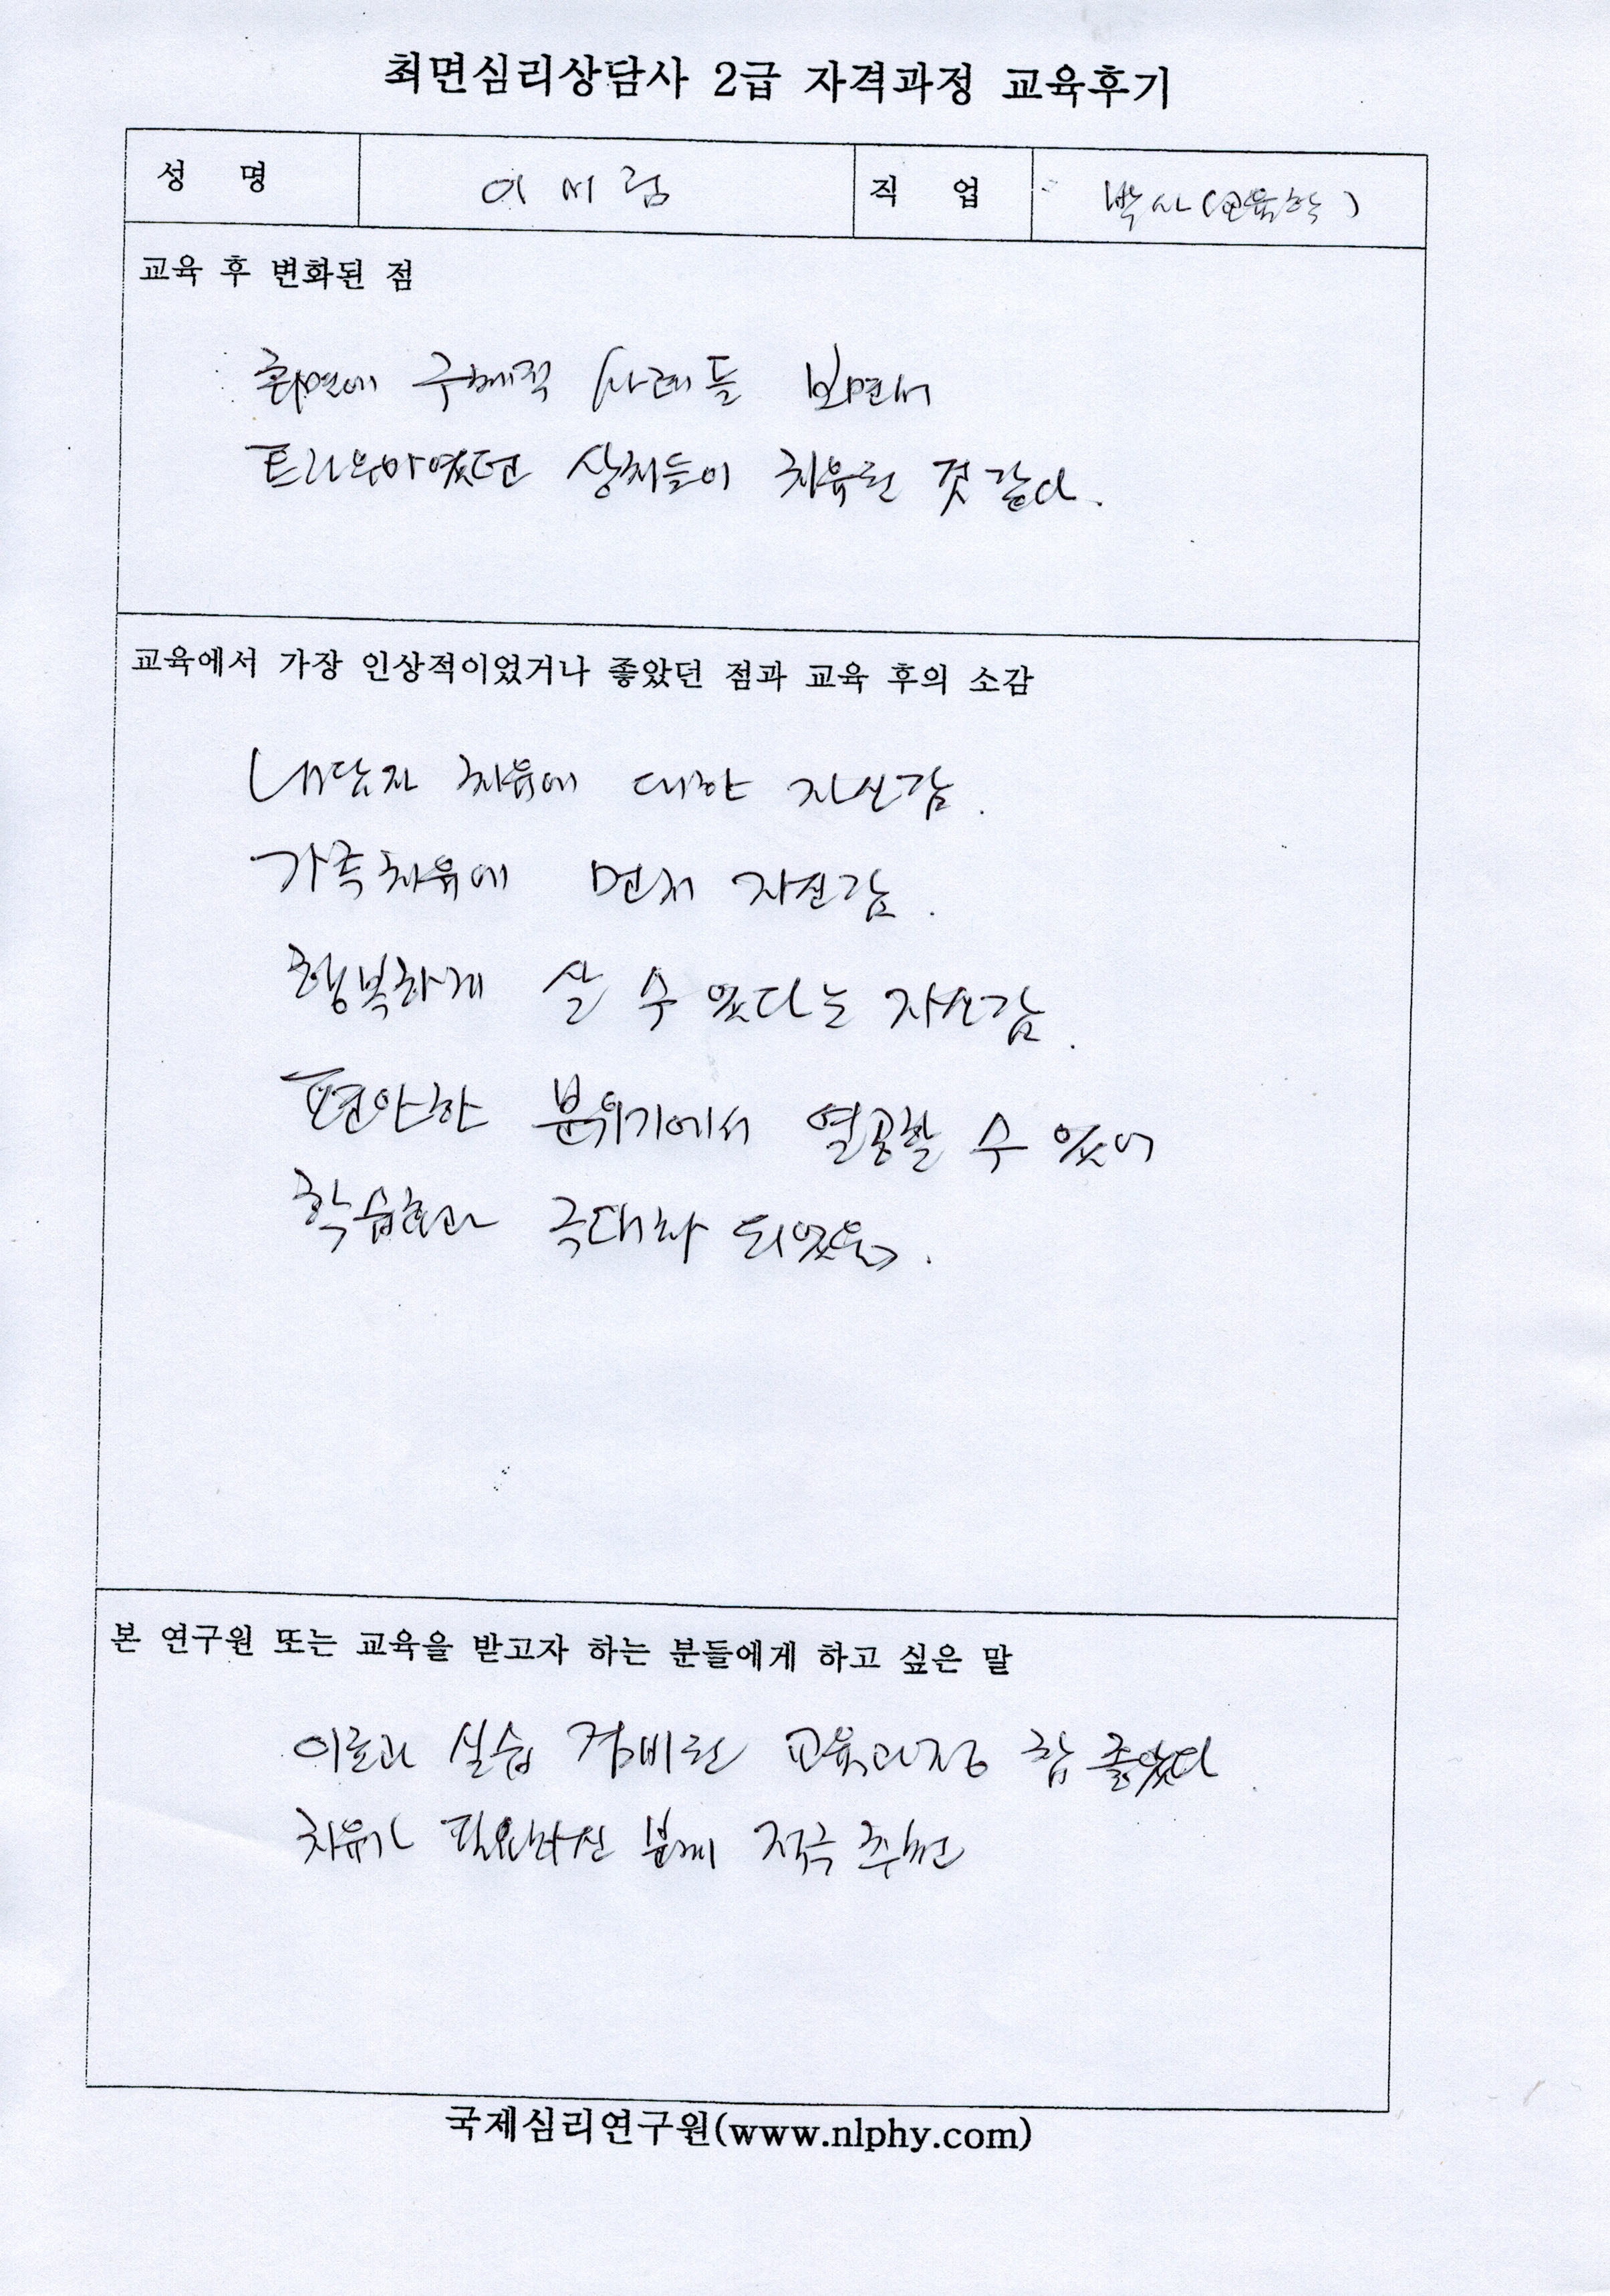 최면심리상담사 2급 자격과정 교육후기
성 명 이서림 직 업 박사(교육학)
교육 후 변화된 점
최면에 구체적 사례들 보면서
트라우마였던 상처들이 치유된 것 같다.
교육에서 가장 인상적이었거나 좋았던 점과 교육 후의 소감
내담자 치유에 대한 자신감.
가족치유에 먼저 자신감.
행복하게 살 수 있다는 자신감.
편안한 분위기에서 열공할 수 있어
학습효과 극대화 되었음.
본 연구원 또는 교육을 받고자 하는 분들에게 하고 싶은 말
이론과 실습 겸비된 교육과정 참 좋았다
치유가 필요하신 분께 적극 추천
국제심리연구원(www.nlphy.com)